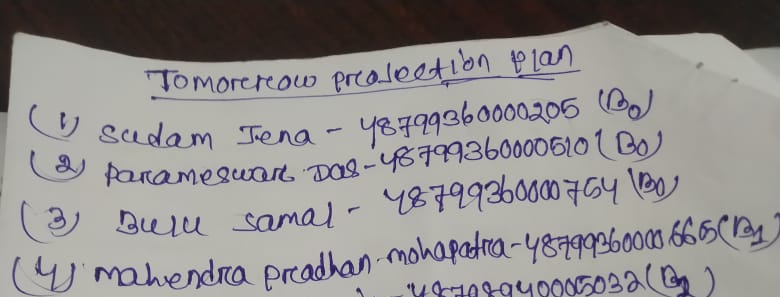 Tomorercow prcojection plan
(1) sudam Jena - 48799360000205 (B0)
(2) parameswar Das - 48799360000510 (B0)
(3) Bulu samal - 48799360000754 (B0)
(4) mahendra prcadhan mohapatra - 48799360000665 (B1)
48798940005032 (B2)